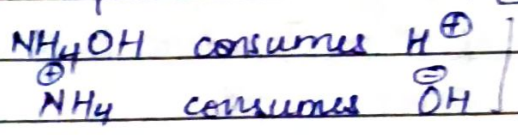 NH₄OH consumes H⊕
⊕NH₄ consumes ⊖OH